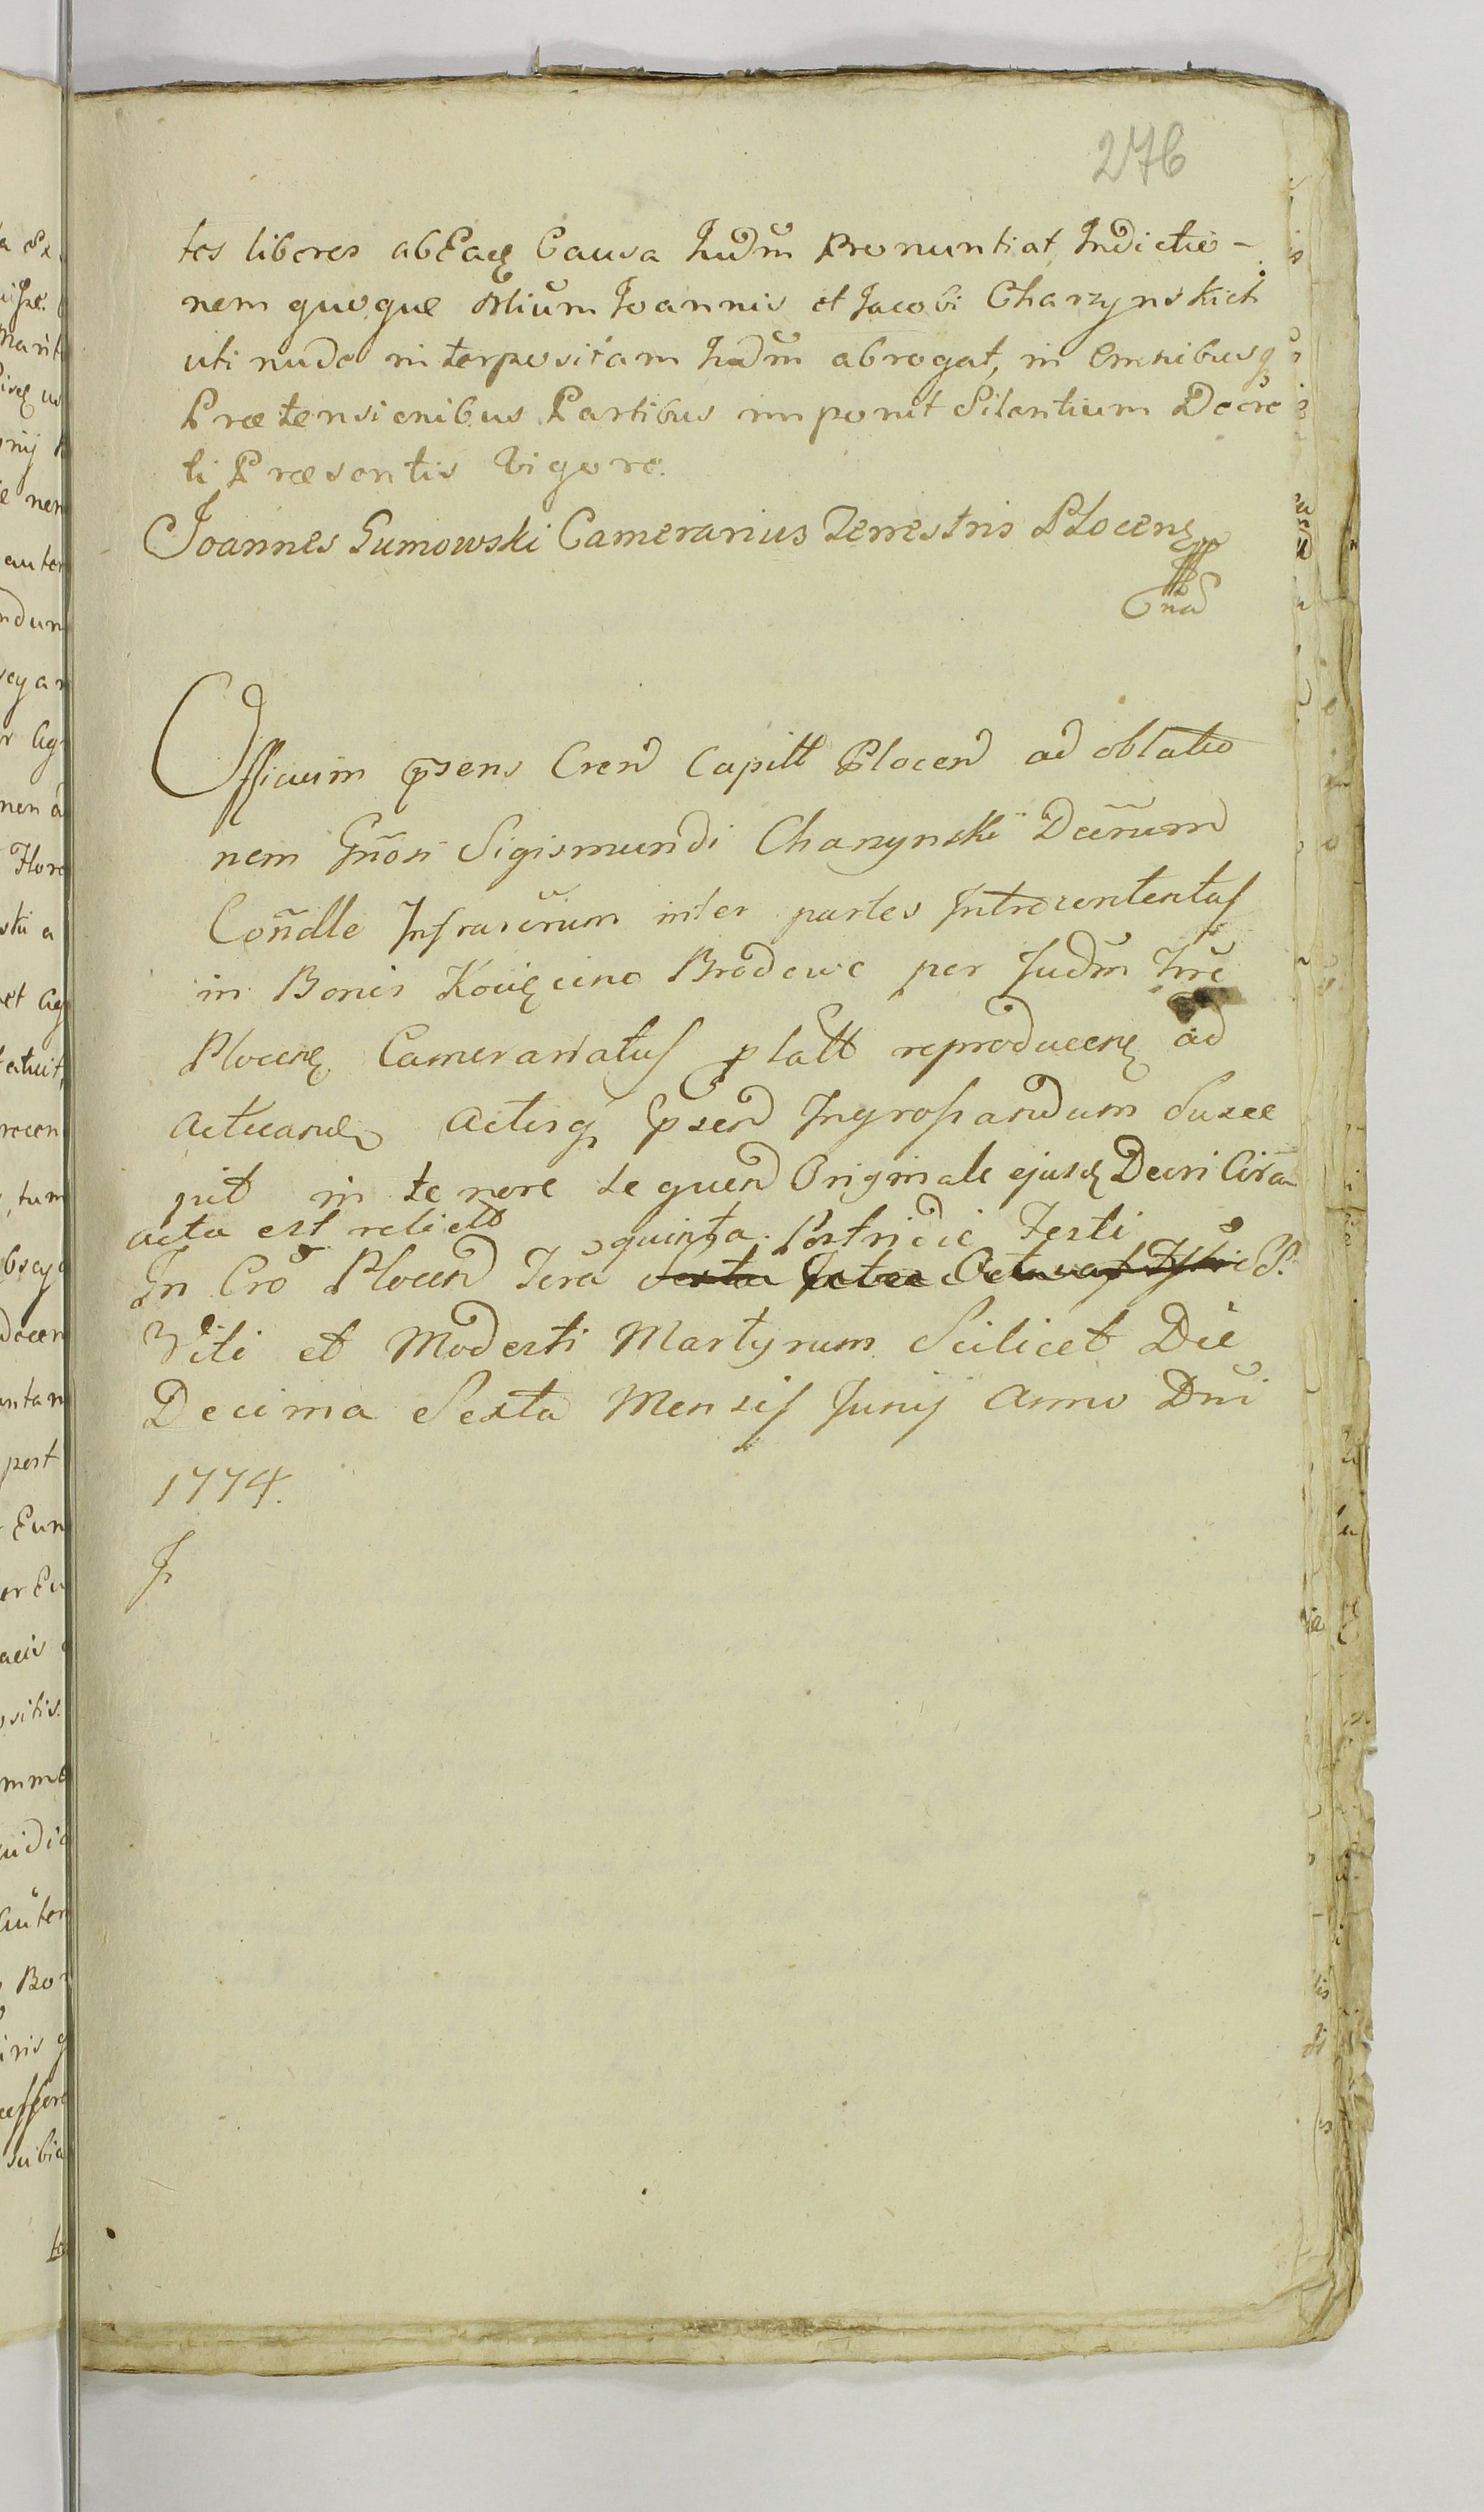 276
tes liberos ab Eadę Causa Iudm̃ Pronuntiat, Indictio-
nem quoque Mĩum Ioannis et Jacobi Charzynskich
uti nude interpositam Iudm̃ abrogat, in omnibusq
Prætensionibus Partibus imponit Silentium Decre
ti Præsentis Vigore.
Joannes Gumowski Camerarius Terrestris Plocenę
Officium p̃sens Cren̄ Capitt Plocen̄ ad oblatio
nem Gñosi Sigismundi Charzynski Decr̃um
Coñdle Infrascr̃um inter partes Introcontentas
in Bonis Kowięcino Brodowe per Iudm̃ Tr̃re
Plocenę Camerariatus platt reproducenę ad
acticandę actisq p̃sen̄ Ingrossandum Susce
pit in tenore sequen̄ Originale ejusdę Decri Circa
acta est relict̄
quinta Postridie Festi
In Cr̃o Plocen̄ Feria Sexta S.
Viti et Modesti Martyrum Scilicet Die
Decima Sexta Mensis Junij Anno Dñi
1774.